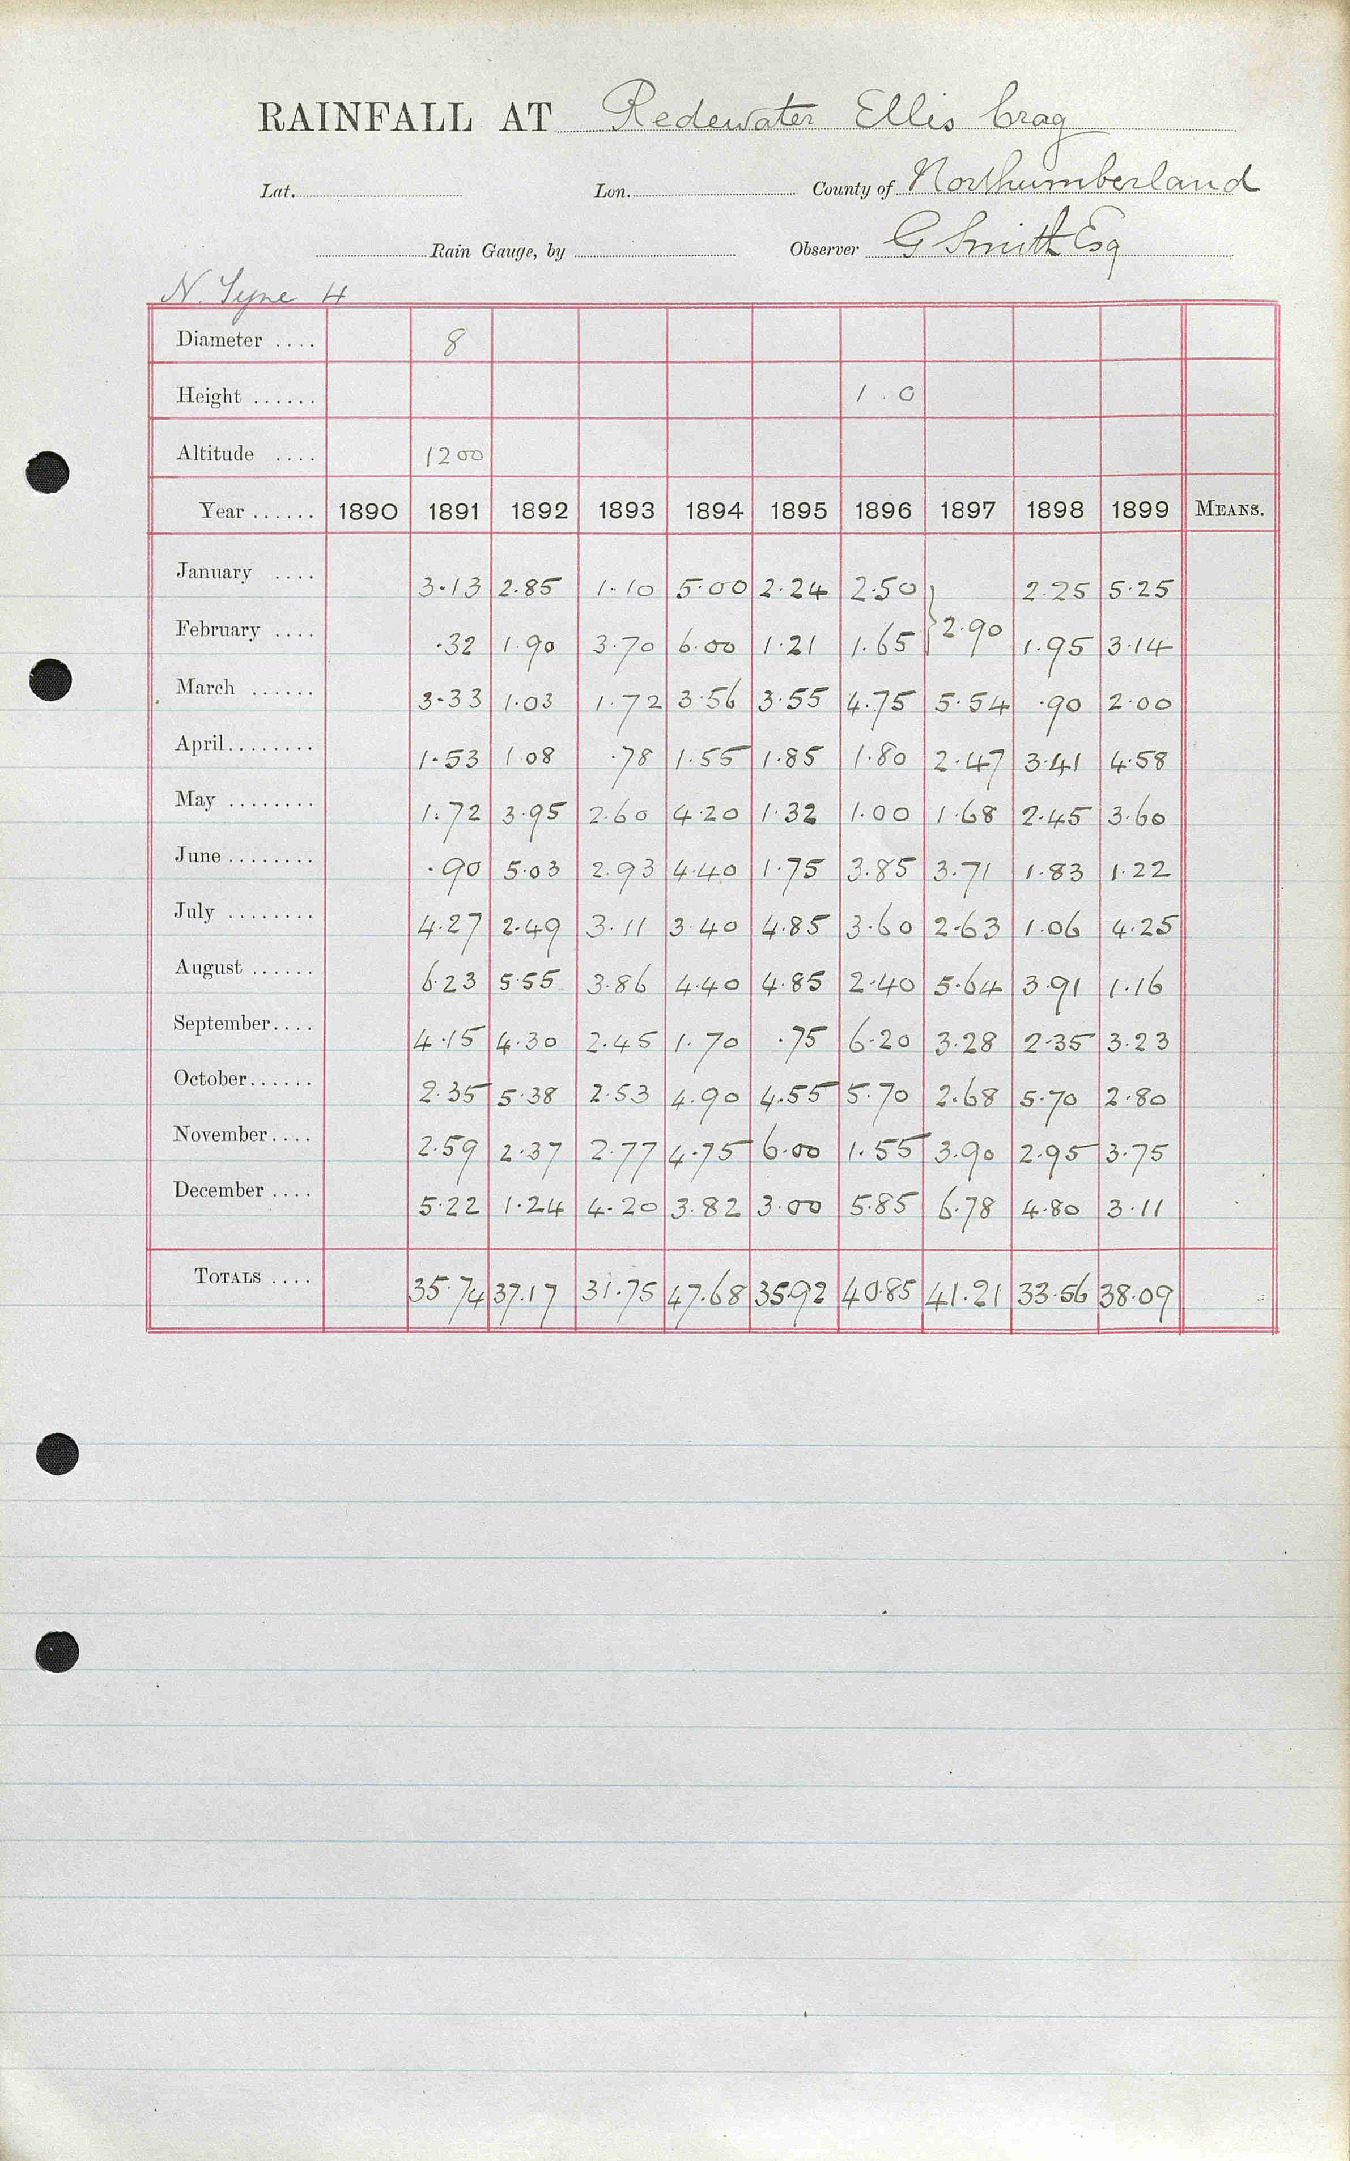 RAINFALL AT Redewater Ellis Crag
Lat. Lon. County of Northumberland
Rain Gauge, by Observer G Smith Esq
N. Tyne 4
Diameter .... 8
Height ...... 1.0
Altitude .... 1200
Year ...... 1890 1891 1892 1893 1894 1895 1896 1897 1898 1899 MEANS.
January .... 3.13 2.85 1.10 5.00 2.24 2.50 2.25 5.25
February .... .32 1.90 3.70 6.00 1.21 1.65 } 2.90 1.95 3.14
March ...... 3.33 1.03 1.72 3.56 3.55 4.75 5.54 .90 2.00
April........ 1.53 1.08 .78 1.55 1.85 1.80 2.47 3.41 4.58
May ........ 1.72 3.95 2.60 4.20 1.32 1.00 1.68 2.45 3.60
June ........ .90 5.03 2.93 4.40 1.75 3.85 3.71 1.83 1.22
July ........ 4.27 2.49 3.11 3.40 4.85 3.60 2.63 1.06 4.25
August ...... 6.23 5.55 3.86 4.40 4.85 2.40 5.64 3.91 1.16
September.... 4.15 4.30 2.45 1.70 .75 6.20 3.28 2.35 3.23
October...... 2.35 5.38 2.53 4.90 4.55 5.70 2.68 5.70 2.80
November.... 2.59 2.37 2.77 4.75 6.00 1.55 3.90 2.95 3.75
December .... 5.22 1.24 4.20 3.82 3.00 5.85 6.78 4.80 3.11
TOTALS .... 35.74 37.17 31.75 47.68 35.92 40.85 41.21 33.56 38.09